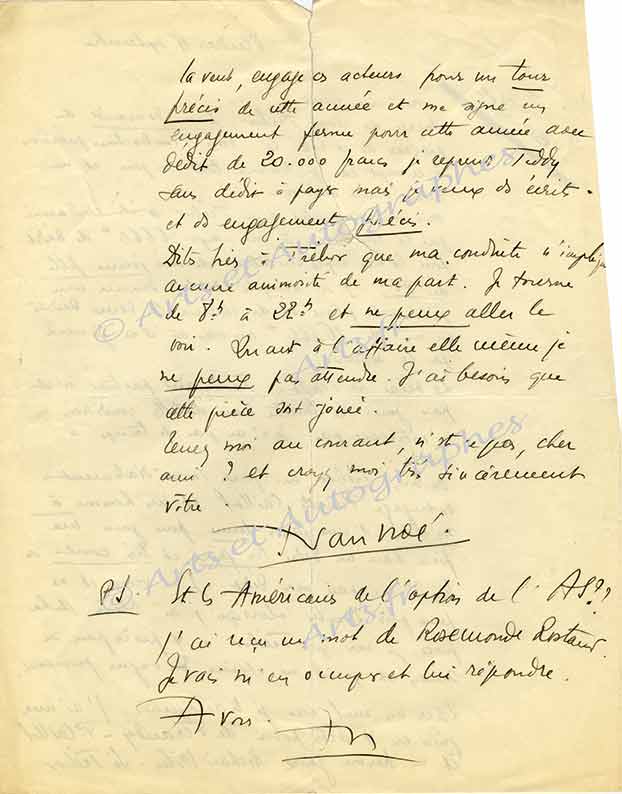 la veut, engage des acteurs pour un tour
précis de cette année et me signe un
engagement ferme pour cette année avec
dédit de 20.000 francs je reprends Teddy
sans dédit à payer mais je veux des écrits
et des engagement précis.
Dites bien à Trébor que ma conduite n'implique
aucune animosité de ma part. Je tourne
de 8h à 22h et ne peux aller le
voir. Quant à l'affaire elle même je
ne peux pas attendre. J'ai besoin que
cette pièce soit jouée.
Tenez moi au courant, n'est ce pas, cher
ami ? et croyez moi très sincèrement
vôtre.
Yvan Noé.
P.S. Et les Américains de l'option de l'AS ??
J'ai reçu un mot de Rosemonde Rostand.
Je vais m'en occuper et lui répondre.
A vous.
© Arts et Autographes
Arts.fr
© Arts et Autographes
Arts.fr